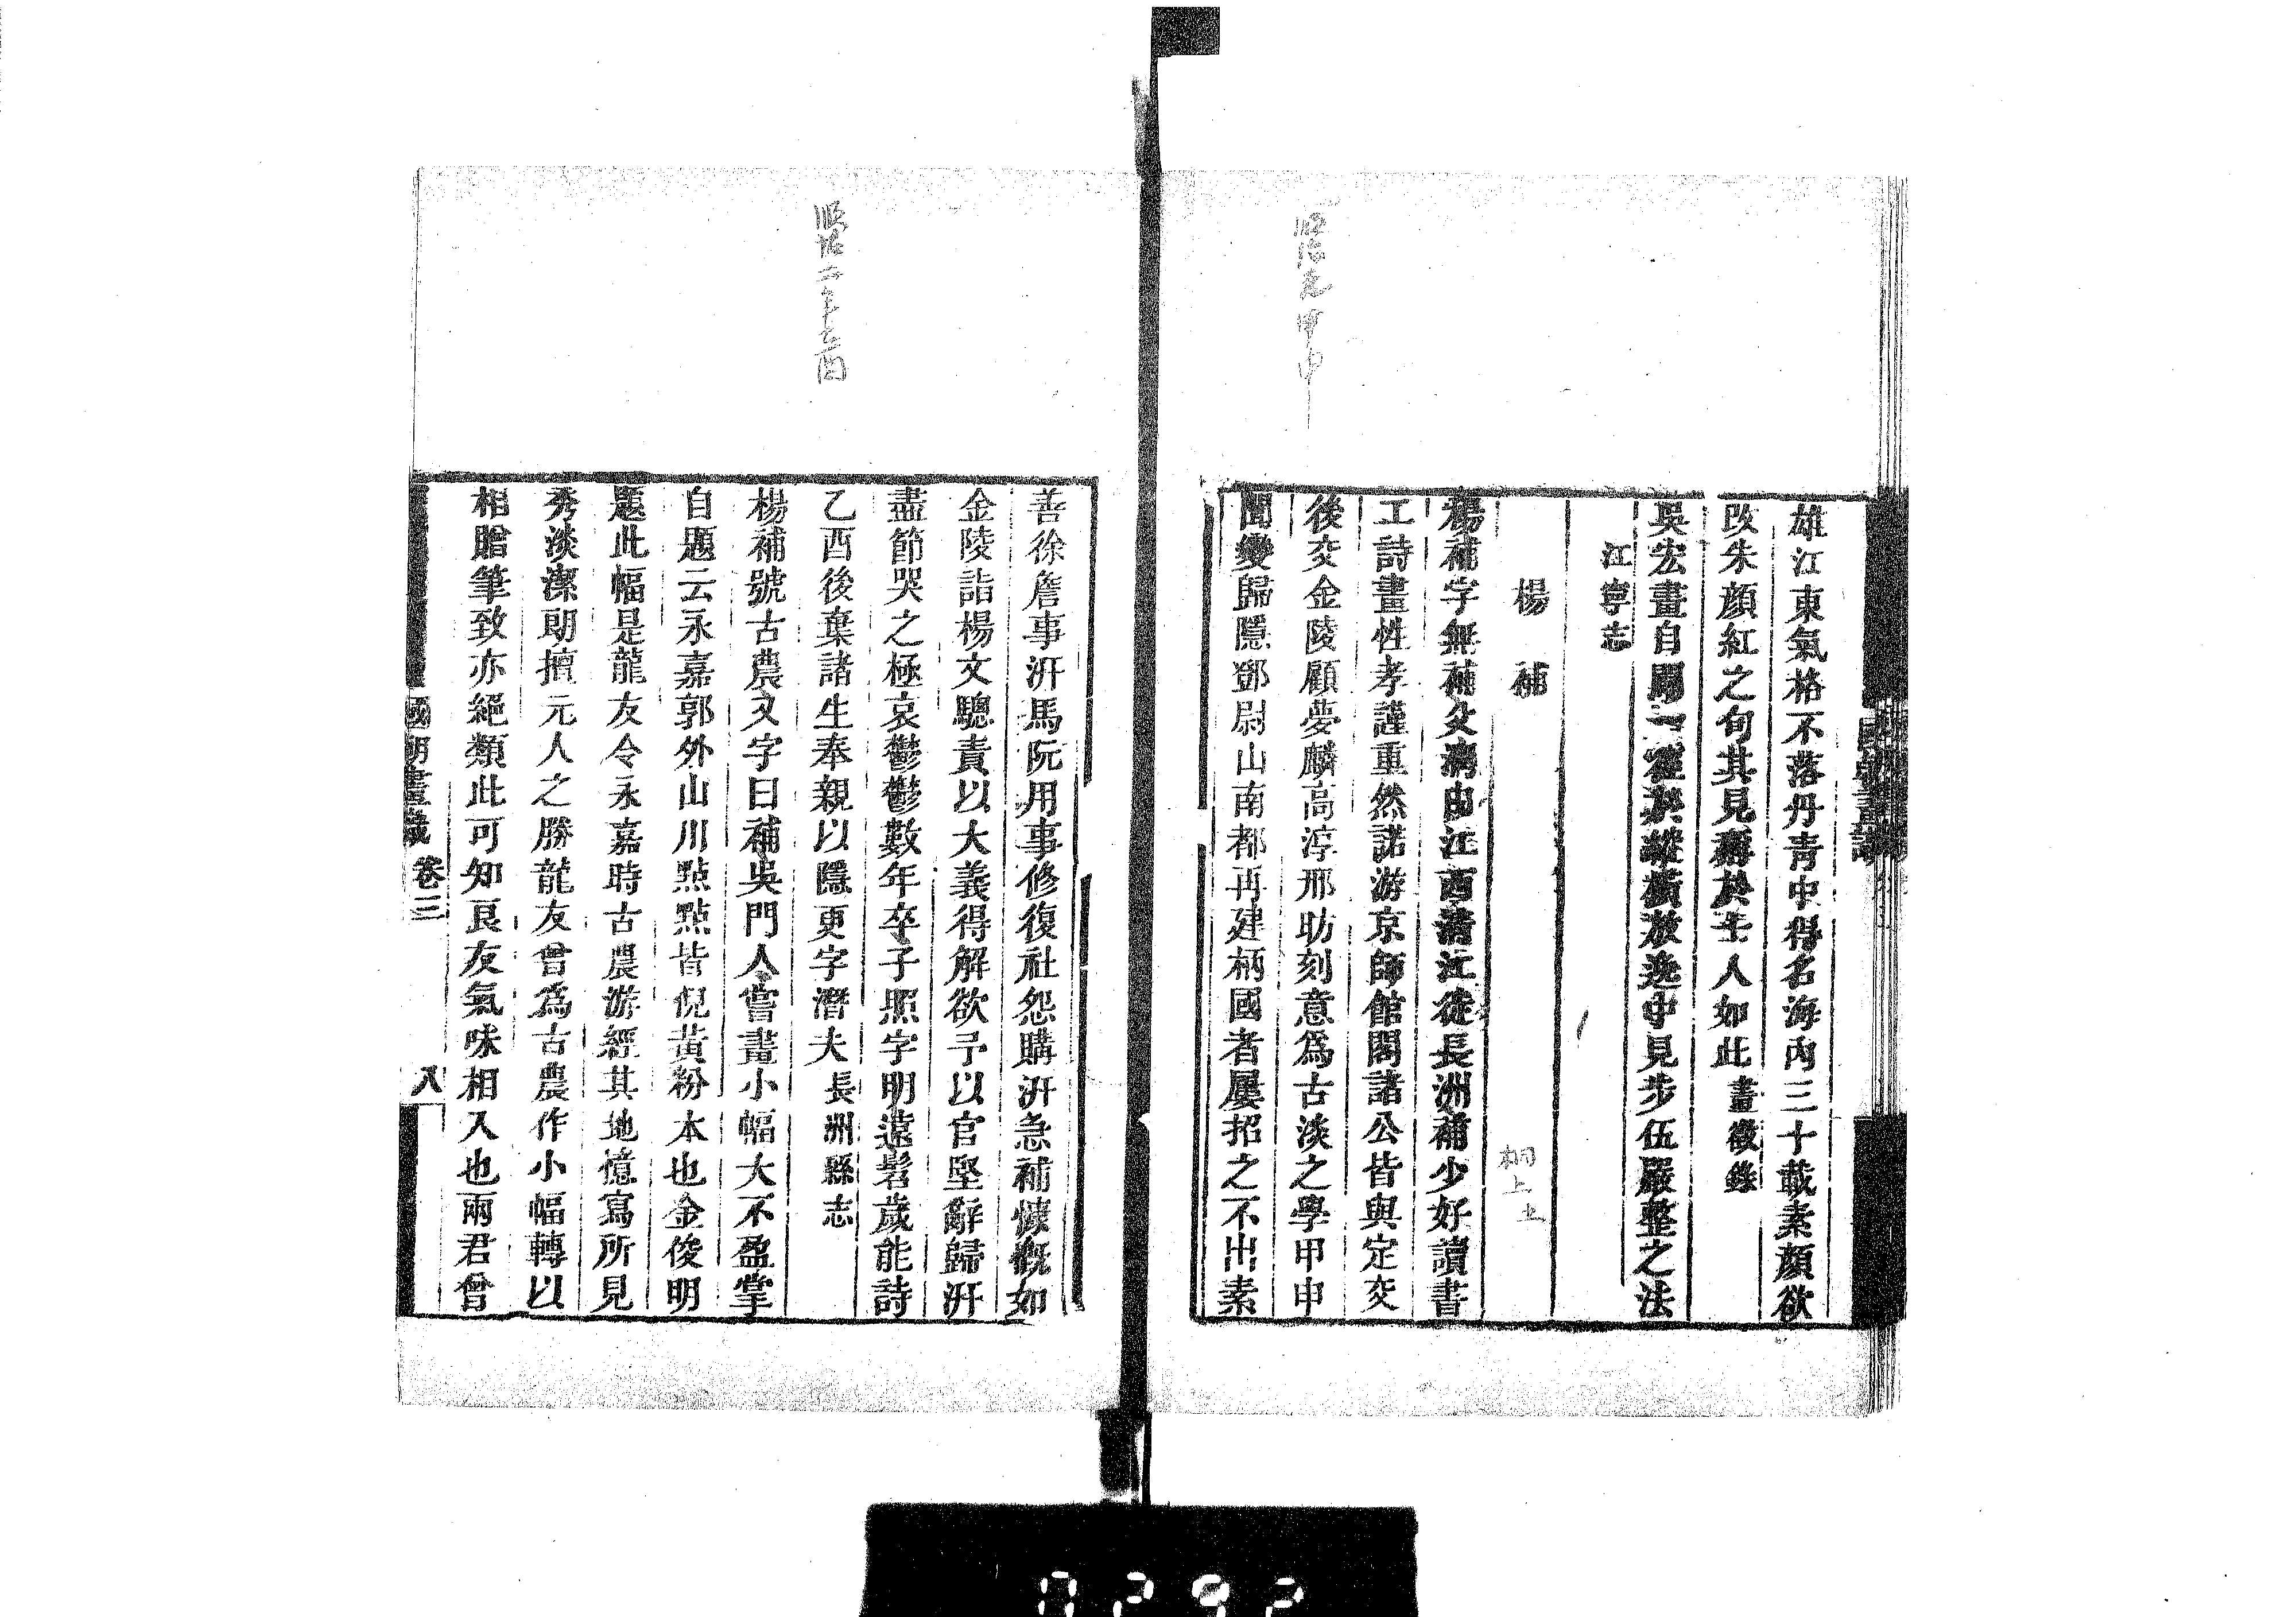 雄江東氣格不落丹青中得名海內三十載素顏欲
改朱顏紅之句其見稱於士人如此畫徵錄
吳宏畫自闢一徑於縱橫放逸中見步伍嚴整之法
江寧志
楊補
楊補字無補父潤由江西清江徙長洲補少好讀書
工詩畫性孝謹重然諾游京師館閣諸公皆與定交
後交金陵顧夢麟高淳邢昉刻意爲古淡之學甲申
聞變歸隱鄧尉山南都再建柄國者屢招之不出素
順治元甲申
桐上
善徐詹事汧馬阮用事修復社怨購汧急補慷慨如
金陵詣楊文驄責以大義得解欲予以官堅辭歸汧
盡節哭之極哀鬱鬱數年卒子照字明遠髫歲能詩
乙酉後棄諸生奉親以隱更字潛夫長洲縣志
楊補號古農又字曰補吳門人嘗畫小幅大不盈掌
自題云永嘉郭外山川點點皆倪黃粉本也金俊明
題此幅是龍友令永嘉時古農游經其地憶寫所見
秀淡潔朗擅元人之勝龍友曾爲古農作小幅轉以
相贈筆致亦絕類此可知良友氣味相入也兩君曾
順治二年乙酉
國朝畫識 卷三 八
0292